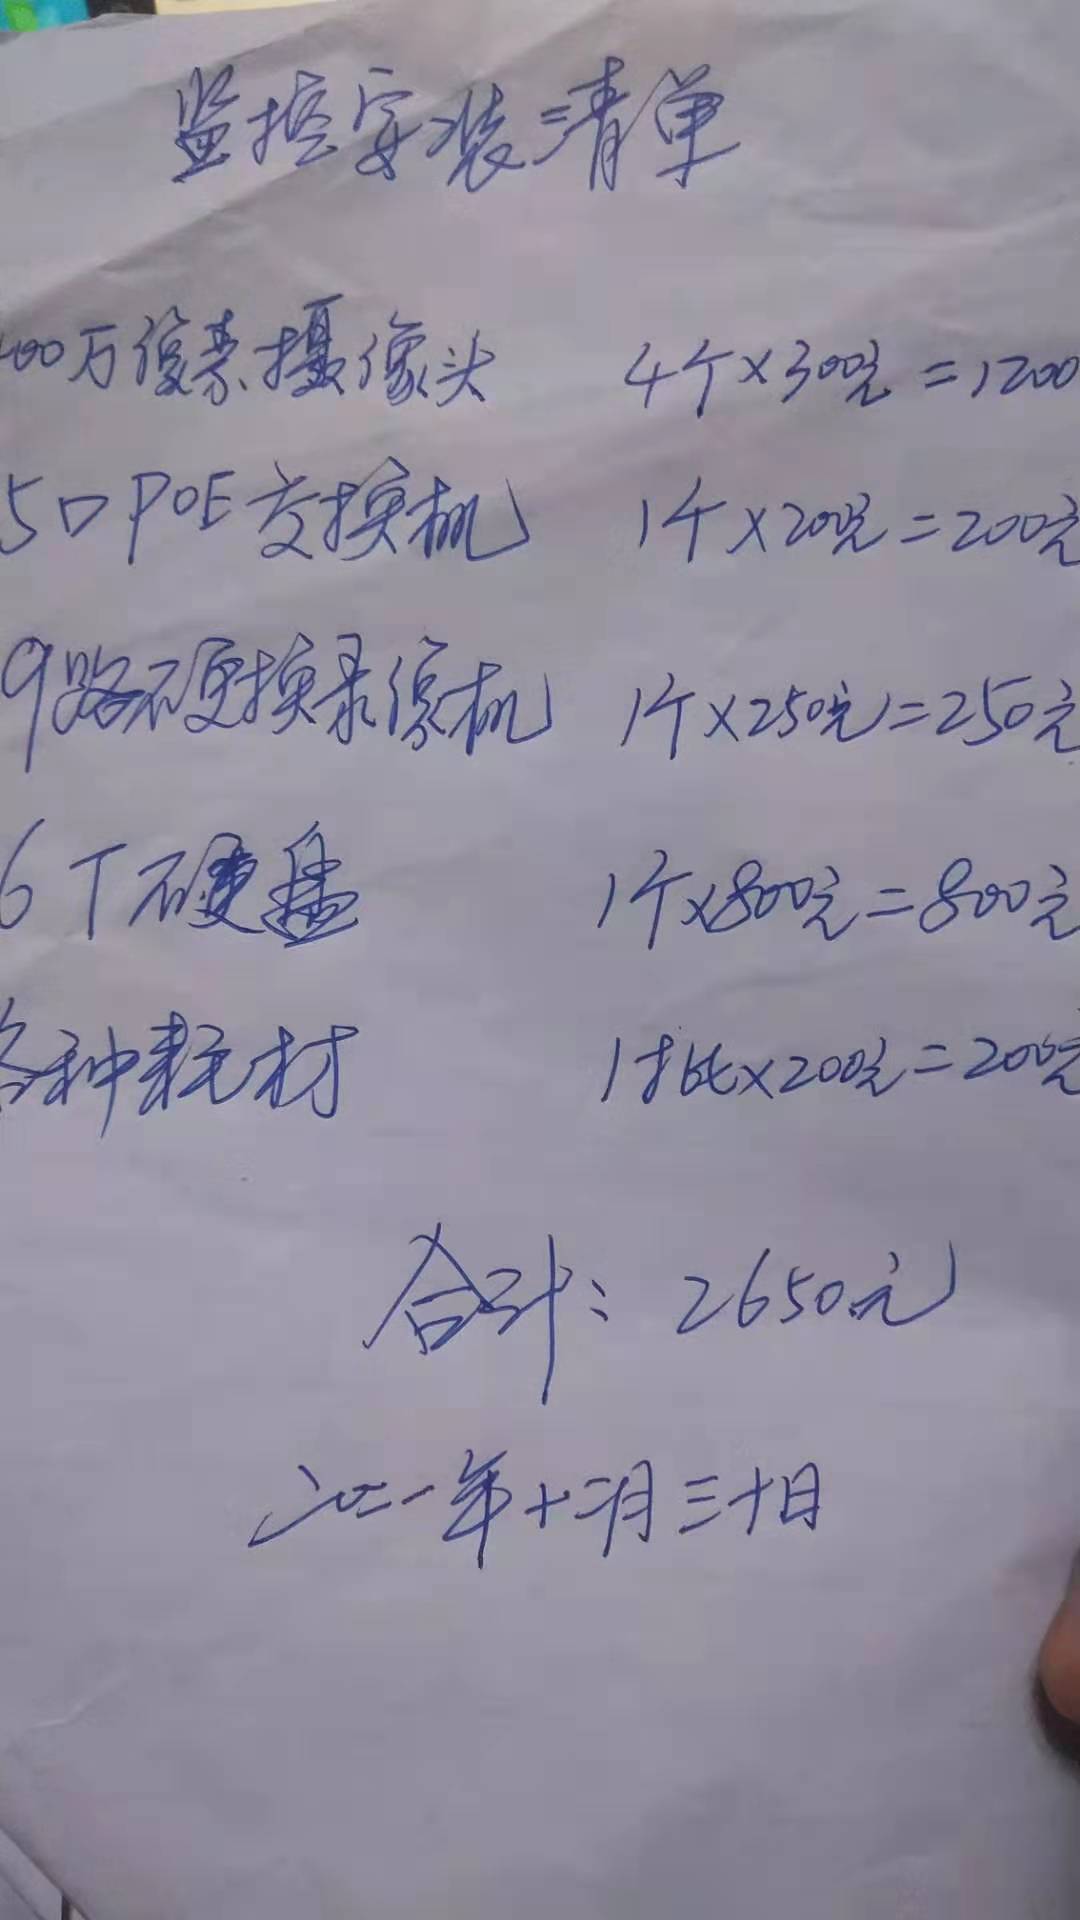 监控安装清单
400万像素摄像头 4个×300元=1200
5口POE交换机 1个×200元=200元
9路硬换录像机 1个×250元=250元
6T硬盘 1个×800元=800元
各种耗材 1批×200元=200元
合计:2650元
二0二一年十二月三十日